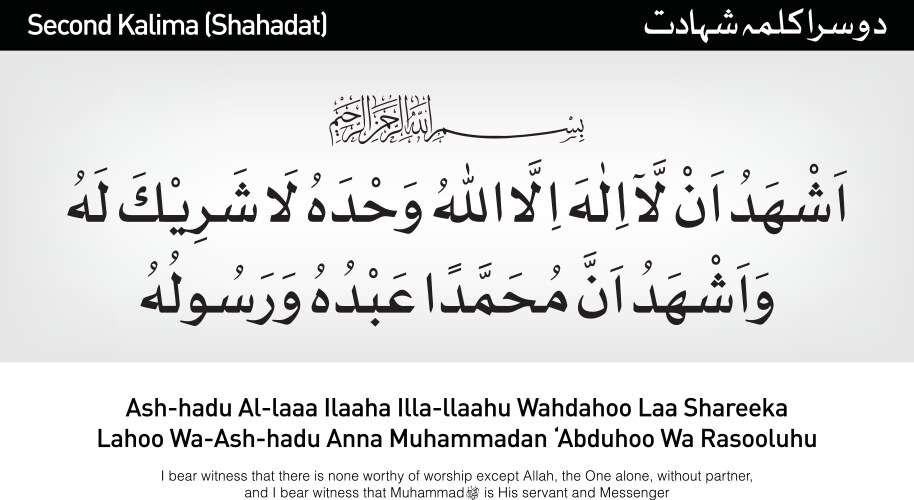 Second Kalima (Shahadat)
دوسرا کلمہ شہادت
بِسْمِ اللهِ الرَّحْمٰنِ الرَّحِيْمِ
اَشْهَدُ اَنْ لَّآ اِلٰهَ اِلَّا اللهُ وَحْدَهُ لَا شَرِيْكَ لَهُ
وَاَشْهَدُ اَنَّ مُحَمَّدًا عَبْدُهُ وَرَسُولُهُ
Ash-hadu Al-laaa Ilaaha Illa-llaahu Wahdahoo Laa Shareeka
Lahoo Wa-Ash-hadu Anna Muhammadan ‘Abduhoo Wa Rasooluhu
I bear witness that there is none worthy of worship except Allah, the One alone, without partner,
and I bear witness that Muhammad ﷺ is His servant and Messenger